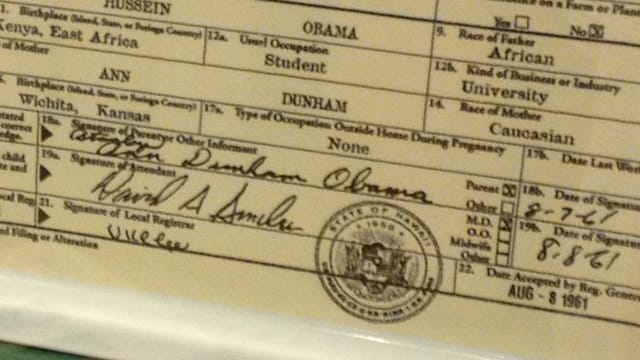 HUSSEIN OBAMA
Yes No X
1. Birthplace (Island, State, or Foreign Country) 12a. Usual Occupation 9. Race of Father
Kenya, East Africa Student African
of Mother 12b. Kind of Business or Industry
University
ANN DUNHAM 14. Race of Mother
Birthplace (Island, State, or Foreign Country) 17a. Type of Occupation Outside Home During Pregnancy Caucasian
Wichita, Kansas None 17b. Date Last Wor
stated correct edge. 18a. Signature of Parent or Other Informant Parent X 18b. Date of Signatur
Ann Dunham Obama Other 8-7-61
child 19a. Signature of Attendant M.D. X 19b. Date of Signatur
David A Sinclair D.O. 8-8-61
Midwife
Other
cal Reg 21. Signature of Local Registrar 22. Date Accepted by Reg. Genera
AUG -8 1961
nd Filing or Alteration
STATE OF HAWAII